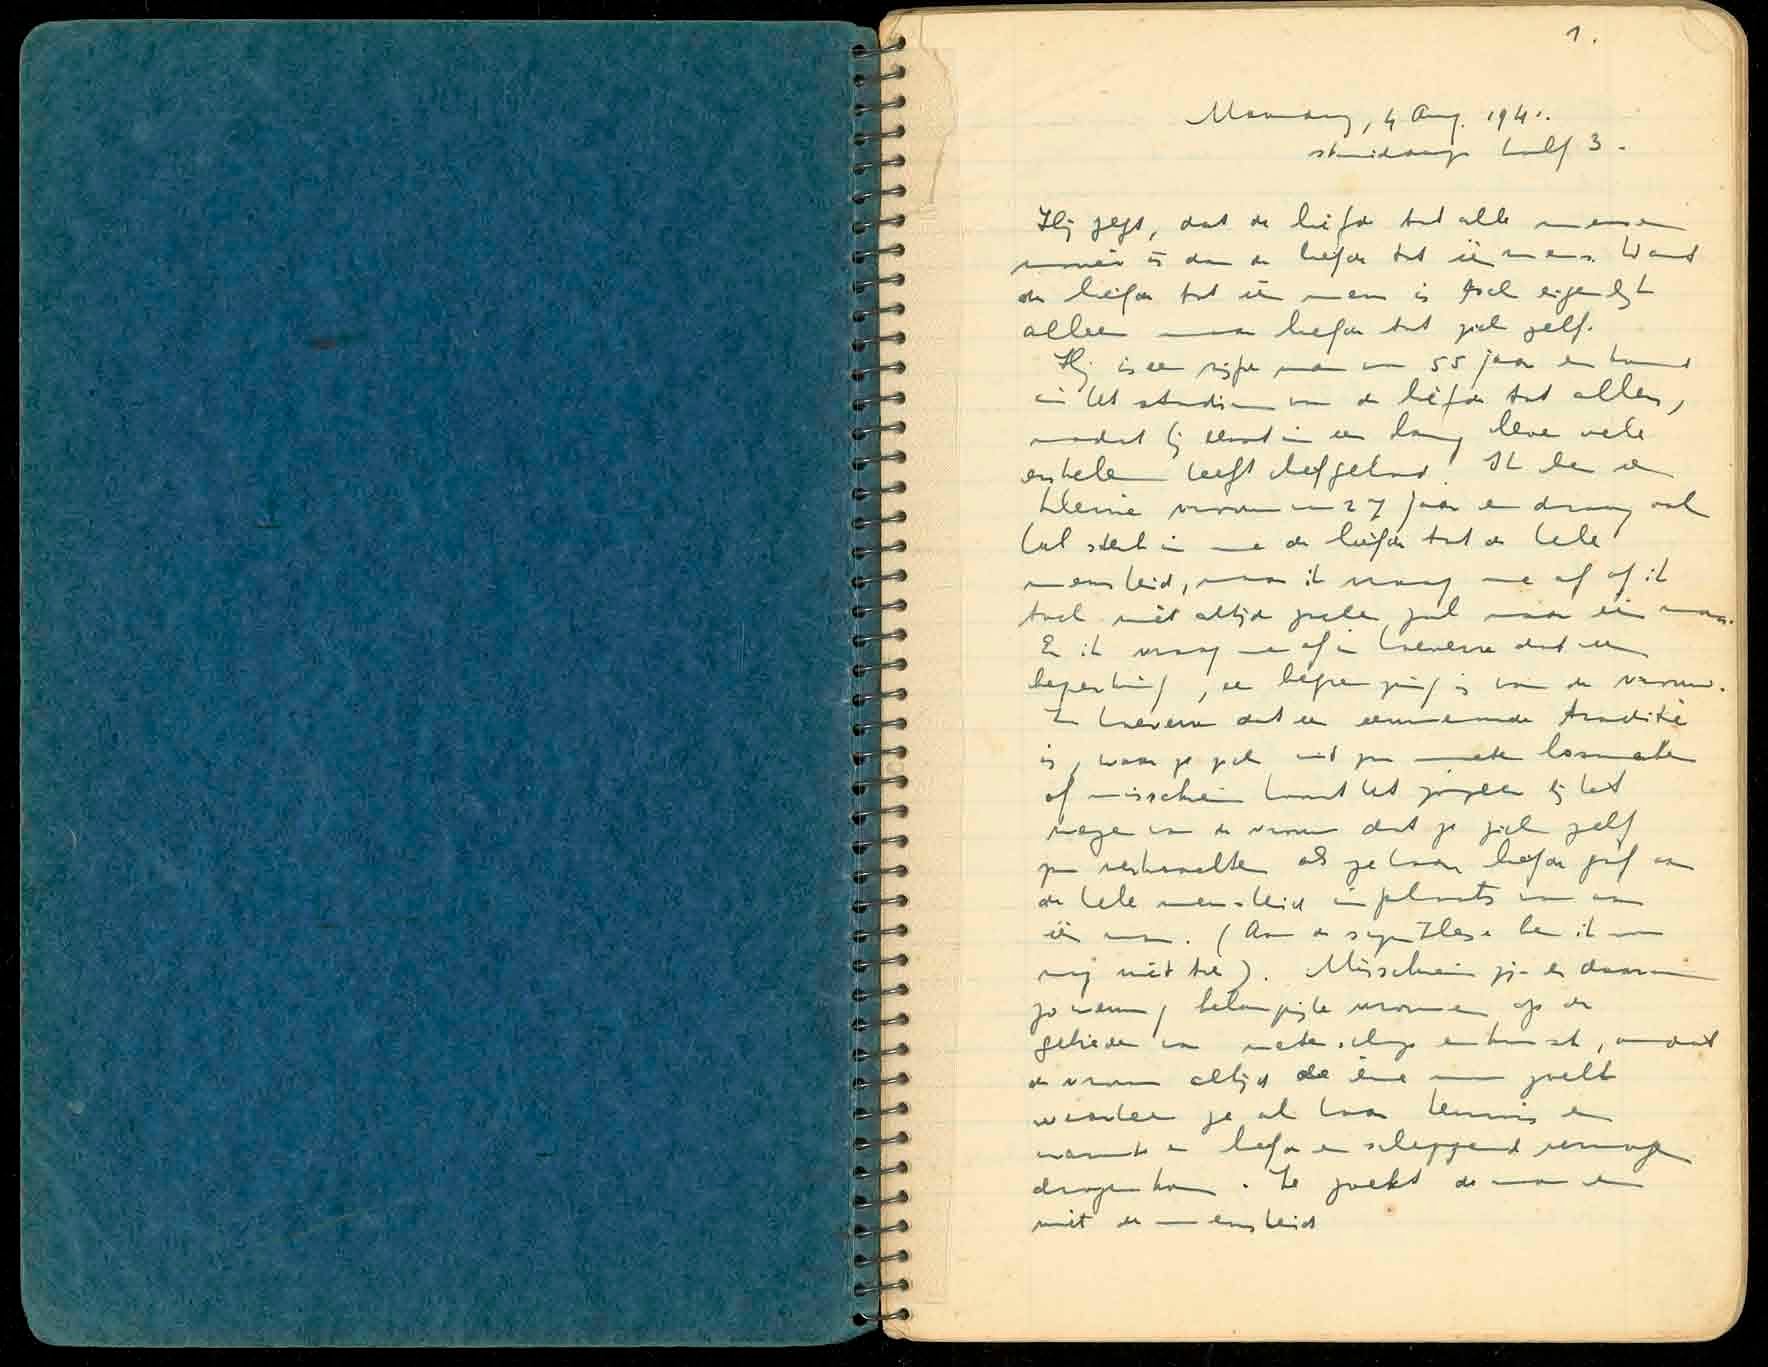 1.
Maandag, 4 Aug. 1941.
's middags half 3.
Hij zegt, dat de liefde tot alle mensen
mooier is dan de liefde tot één mens. Want
de liefde tot één mens is toch eigenlijk
alleen maar liefde tot zich zelf.
Hij is een rijpe man van 55 jaar en komt
in het stadium van de liefde tot allen,
nadat hij eerst in een lang leven vele
enkelen heeft liefgehad. Ik ben een
kleine vrouw van 27 jaar en draag ook
heel sterk in me de liefde tot de hele
mensheid, maar ik vraag me af of ik
toch niet altijd zoeken zal naar één man.
En ik vraag me af in hoeverre dat een
beperking, een begrenzing is van de vrouw.
In hoeverre dat een eeuwenoude traditie
is, waar ze zich uit zou moeten losmaken
of misschien hoort het zozeer bij het
wezen van de vrouw dat ze zich zelf
zou verkrachten als ze haar liefde gaf aan
de hele mensheid in plaats van aan
één man. (Aan de synthese ben ik nog
nog niet toe). Misschien zijn er daarom
zo weinig belangrijke vrouwen op de
gebieden van wetenschap en kunst, omdat
de vrouw altijd de ène man zoekt
waarheen ze al haar kennis en
warmte en liefde en scheppend vermogen
dragen kan. Ze zoekt de man en
niet de mensheid